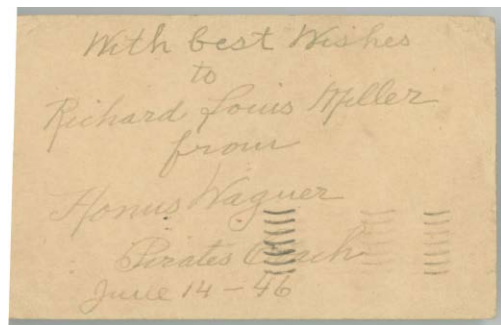 With best Wishes
to
Richard Louis Miller
from
Honus Wagner
Pirates Coach
June 14 - 46